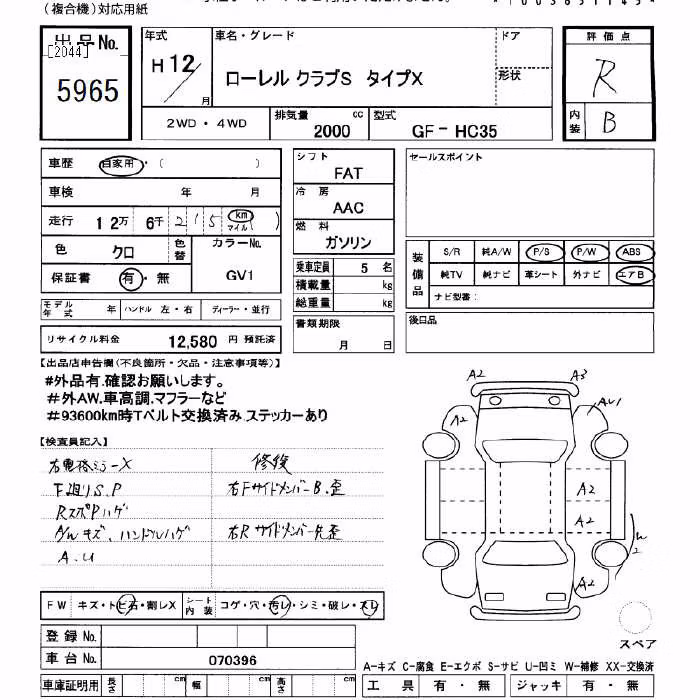 (複合機)対応用紙
出品No.
[2044]
5965
年式
H 12 月
車名・グレード
ローレル クラブS タイプX
ドア
形状
評価点
R
内装 B
2WD・4WD
排気量 2000 cc
型式 GF-HC35
車歴 自家用・( )
車検 年 月
走行 12万 6千 215 km マイル( )
色 クロ
色替
カラーNo. GV1
保証書 有・無
モデル年式 年
ハンドル 左・右
ディーラー・並行
リサイクル料金 12,580 円 預託済
シフト
FAT
冷房
AAC
燃料
ガソリン
乗車定員 5 名
積載量 kg
総重量 kg
書類期限
月 日
セールスポイント
装備品
S/R 純A/W P/S P/W ABS
純TV 純ナビ 革シート 外ナビ エアB
ナビ型番:
後日品
【出品店申告欄(不良箇所・欠品・注意事項等)】
#外品有.確認お願いします。
#外AW.車高調.マフラーなど
#93600km時Tベルト交換済み.ステッカーあり
【検査員記入】
右電格ミラーX
F廻りS.P
RスポPハゲ
A/Wキズ、ハンドルハゲ
A.U
修復
右FサイドメンバーB.歪
右Rサイドメンバー先歪
A2
A3
A2
AU1
A2
A2
A2
W2
スペア
FW キズ・トビ石・割レX
シート内装 コゲ・穴・汚レ・シミ・破レ・スレ
登録No.
車台No. 070396
車庫証明用 長さ cm 幅 cm 高さ cm
A-キズ C-腐食 E-エクボ S-サビ U-凹ミ W-補修 XX-交換済
工具 有・無 ジャッキ 有・無